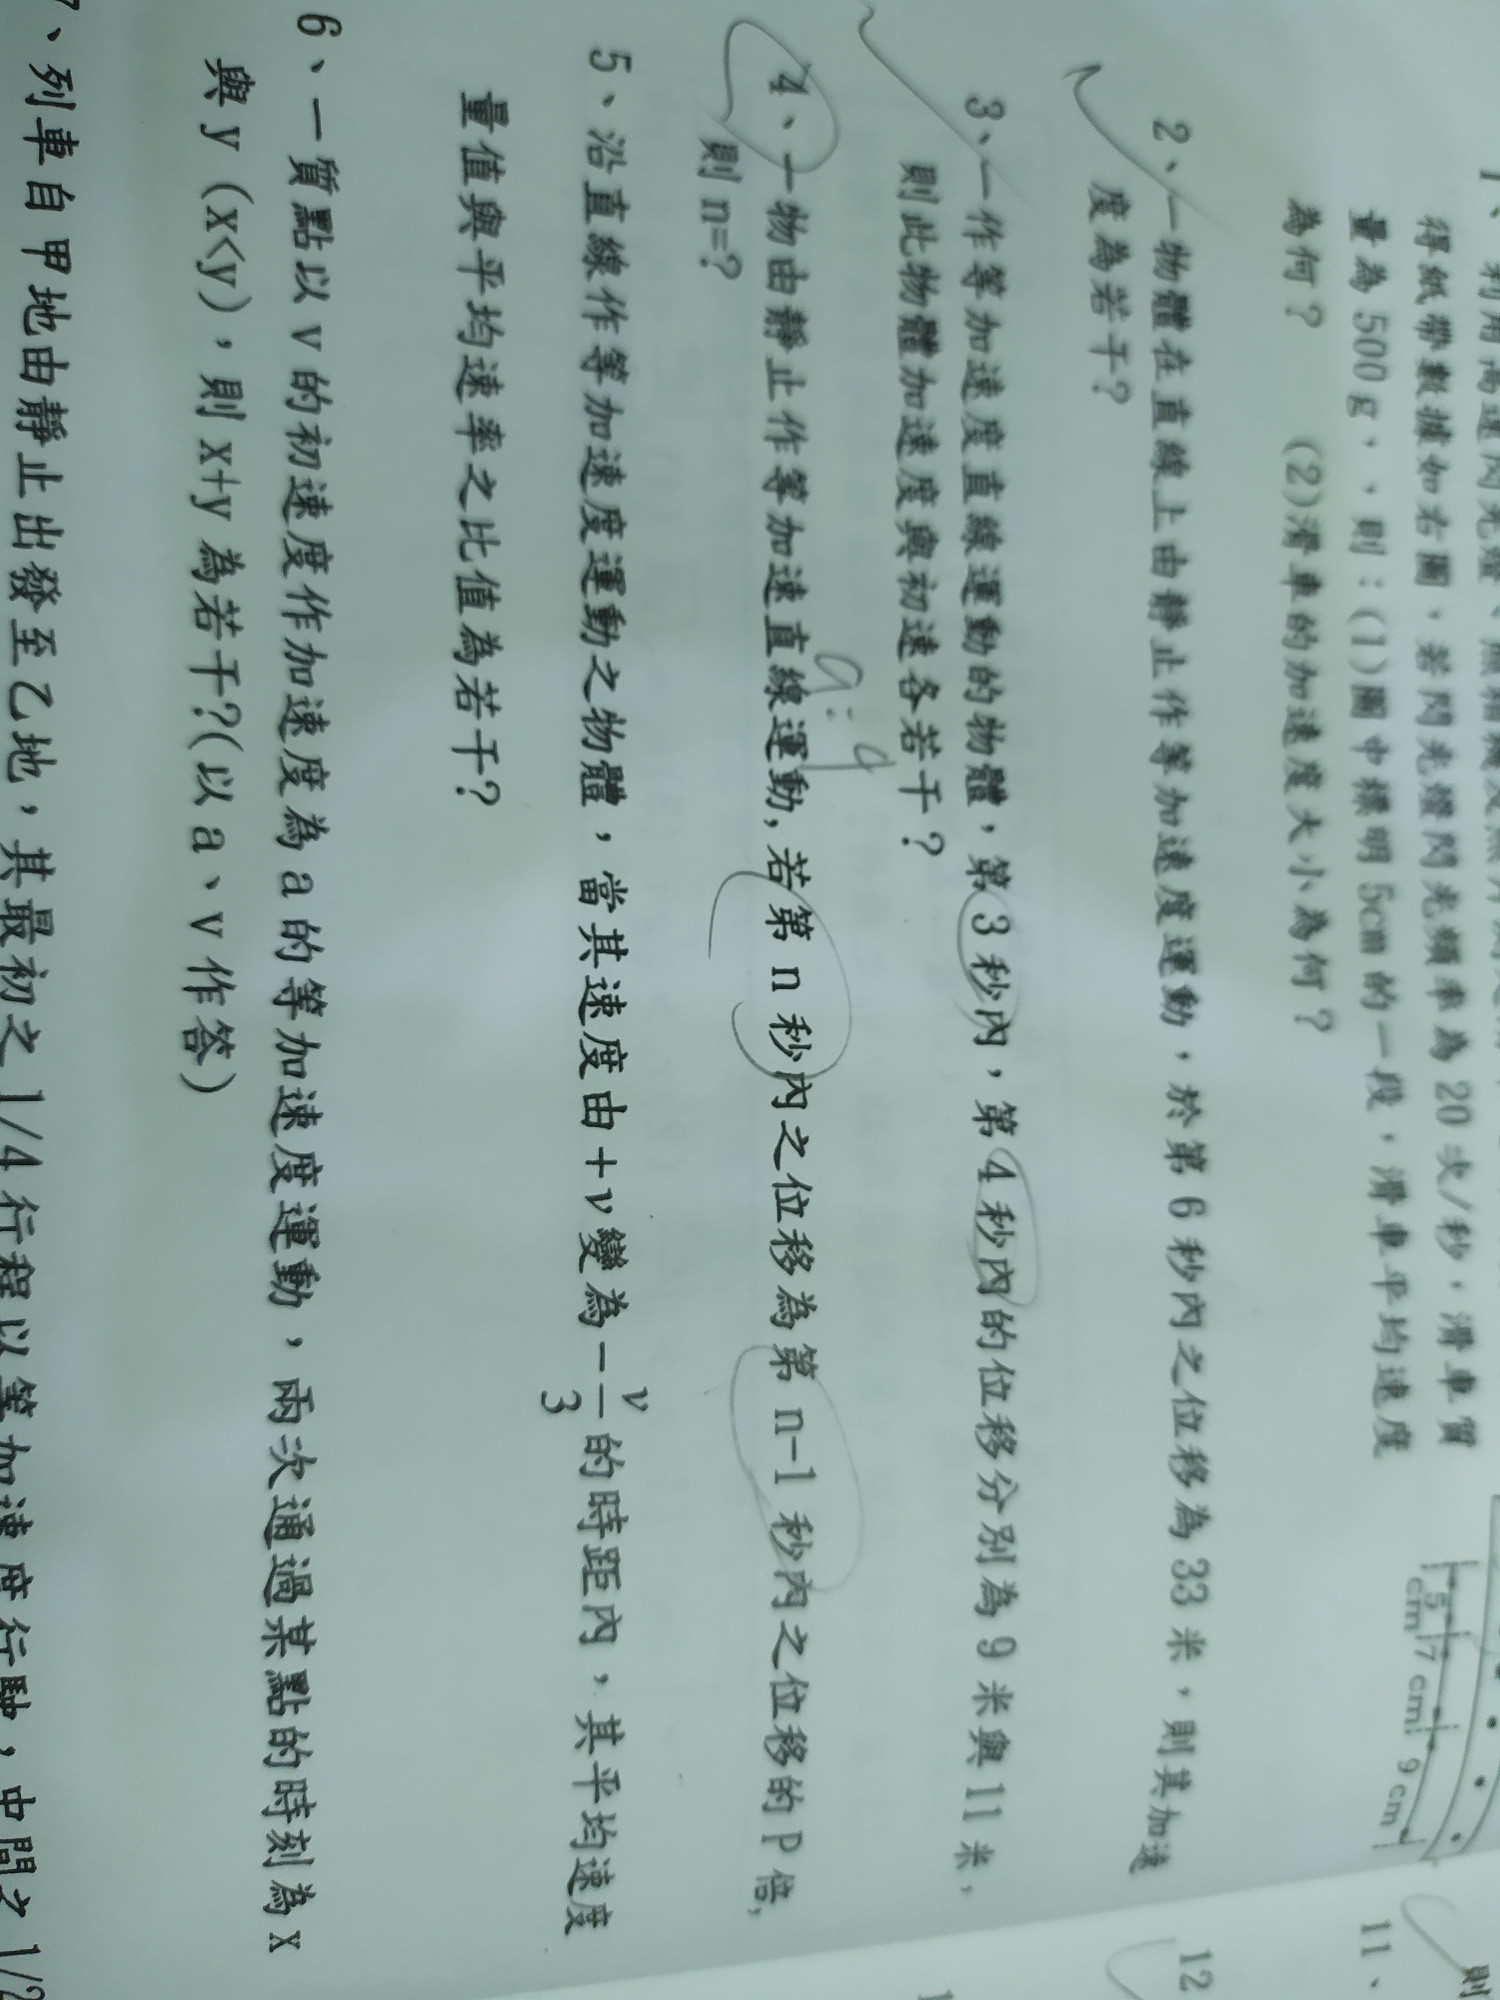 得紙帶數據如右圖，若閃光燈閃光頻率為 20 次/秒，滑車質
量為 500 g，，則：(1)圖中標明 5cm 的一段，滑車平均速度
為何？ (2)滑車的加速度大小為何？
5 cm 7 cm 9 cm
2、一物體在直線上由靜止作等加速度運動，於第 6 秒內之位移為 33 米，則其加速
度為若干?
3、一作等加速度直線運動的物體，第 3 秒內，第 4 秒內的位移分別為 9 米與 11 米，
則此物體加速度與初速各若干？
4、一物由靜止作等加速直線運動,若第 n 秒內之位移為第 n-1 秒內之位移的 P 倍,
則 n=?
5、沿直線作等加速度運動之物體，當其速度由+v變為-v/3的時距內，其平均速度
量值與平均速率之比值為若干?
6、一質點以 v 的初速度作加速度為 a 的等加速度運動，兩次通過某點的時刻為 x
與 y (x<y)，則 x+y 為若干?(以 a、v 作答)
7、列車自甲地由靜止出發至乙地，其最初之 1/4 行程以等加速度行駛，中間之 1/2
則
11、
12